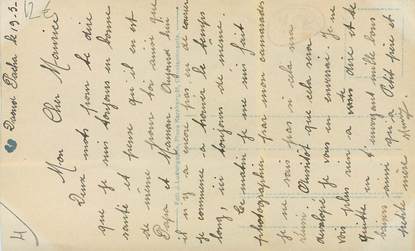 Daoud Pacha le 19.5.
Mon Cher Maurice
Deux mots pour te dire
que je suis toujours en bonne
santé et pense qu'il en est
de même pour toi ainsi que
Papa et Maman. Aujourd'hui
il n'y a encore pas en de courrier
je commence a trouver le temps
long, ici toujours de même.
Ce matin je me suis fait
photographier par mon camarade
je ne sais pas si cela sera
réussi Aussitot que cela sera
developé je vous en enverrai Je ne
vois plus rien a te dire et te
quitte en t'envoyant mille bons
baisers ainsi qu'a Petit père et
petite mère